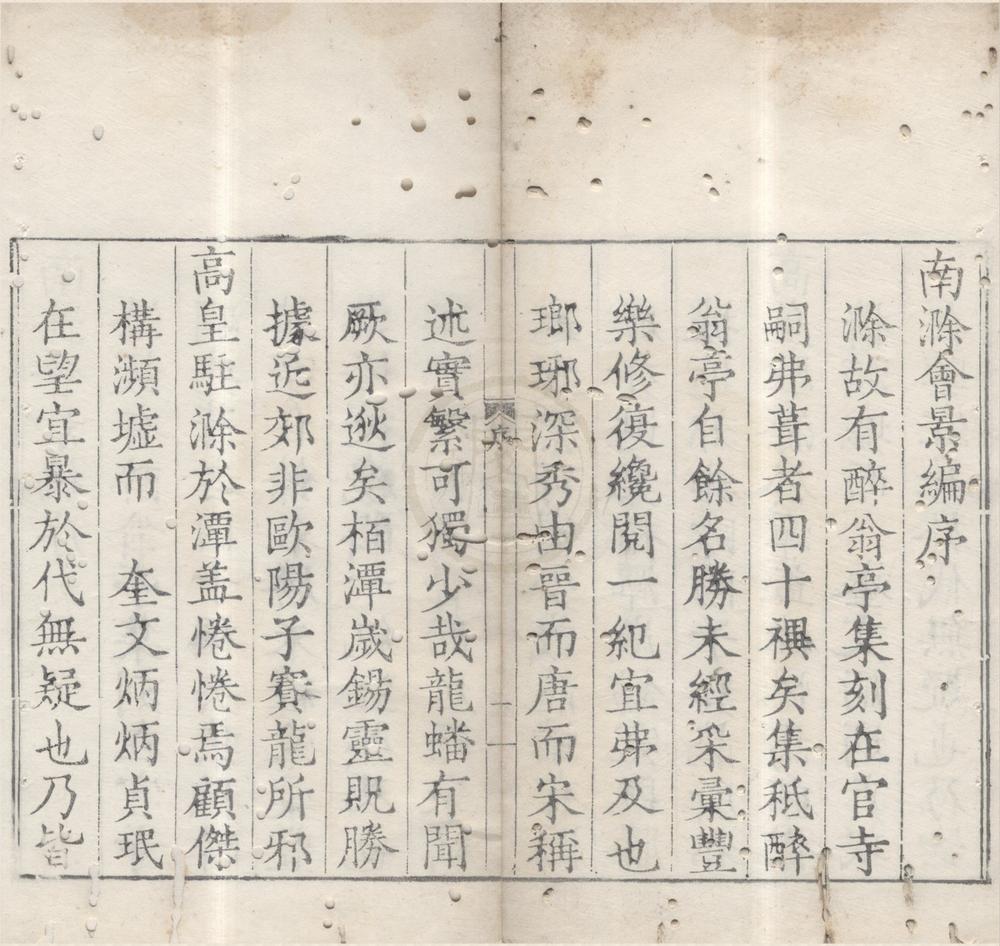 南滁會景編序
滁故有醉翁亭集刻在官寺
嗣弗葺者四十禩矣集秪醉
翁亭自餘名勝未經采彙豐
樂修復纔閱一紀宜弗及也
瑯琊深秀由晉而唐而宋稱
序
一
述實繁可獨少哉龍蟠有聞
厥亦逖矣栢潭歲錫靈貺勝
據近郊非歐陽子賽龍所邪
高皇駐滁於潭盖惓惓焉顧傑
構瀕墟而　奎文炳炳貞珉
在望宜暴於代無疑也乃皆